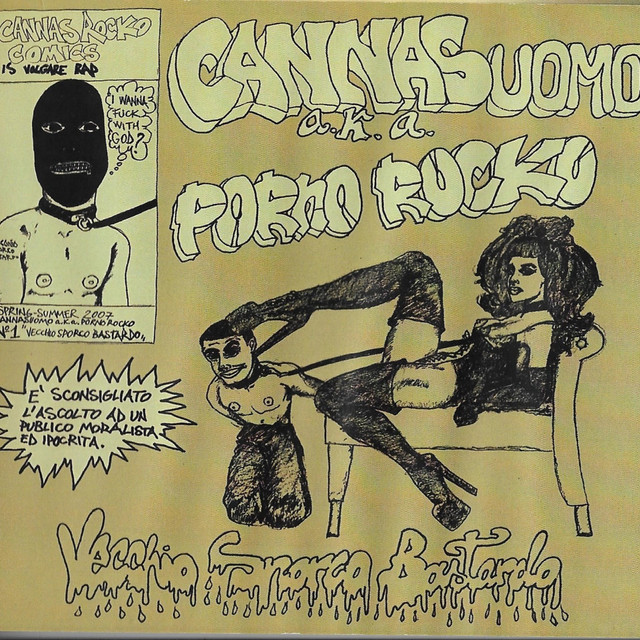 CANNAS ROCKO
COMICS
IS VOLGARE RAP
I WANNA
FUCK
WITH
GOD?
SPRING-SUMMER 2007
CANNASUOMO a.k.a. PORNO ROCKO
N°1 "VECCHIO SPORCO BASTARDO"
CANNASUOMO
a.k.a.
PORNO ROCKO
E' SCONSIGLIATO
L'ASCOLTO AD UN
PUBLICO MORALISTA
ED IPOCRITA.
Vecchio Sporco Bastardo